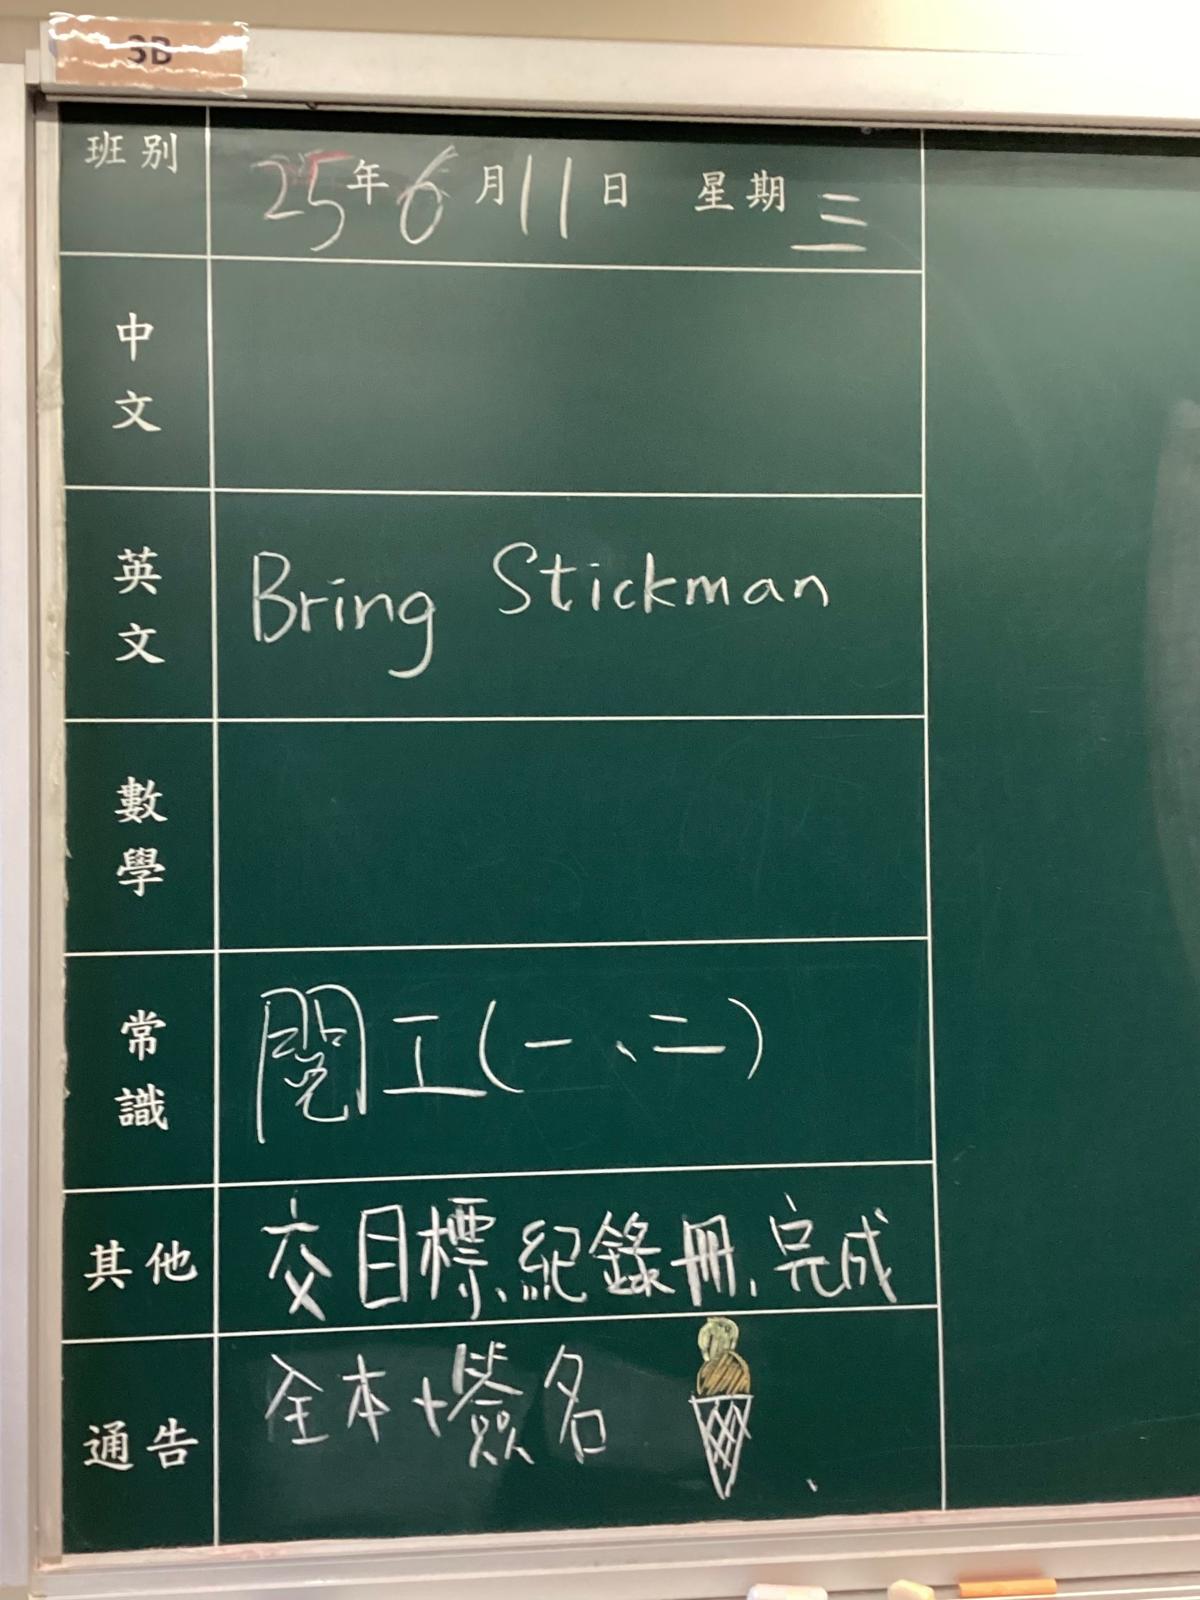 3B
班別 25年6月11日 星期三
中文
英文 Bring Stickman
數學
常識 閱工(一、二)
其他 交目標、紀錄冊、完成
通告 全本+簽名